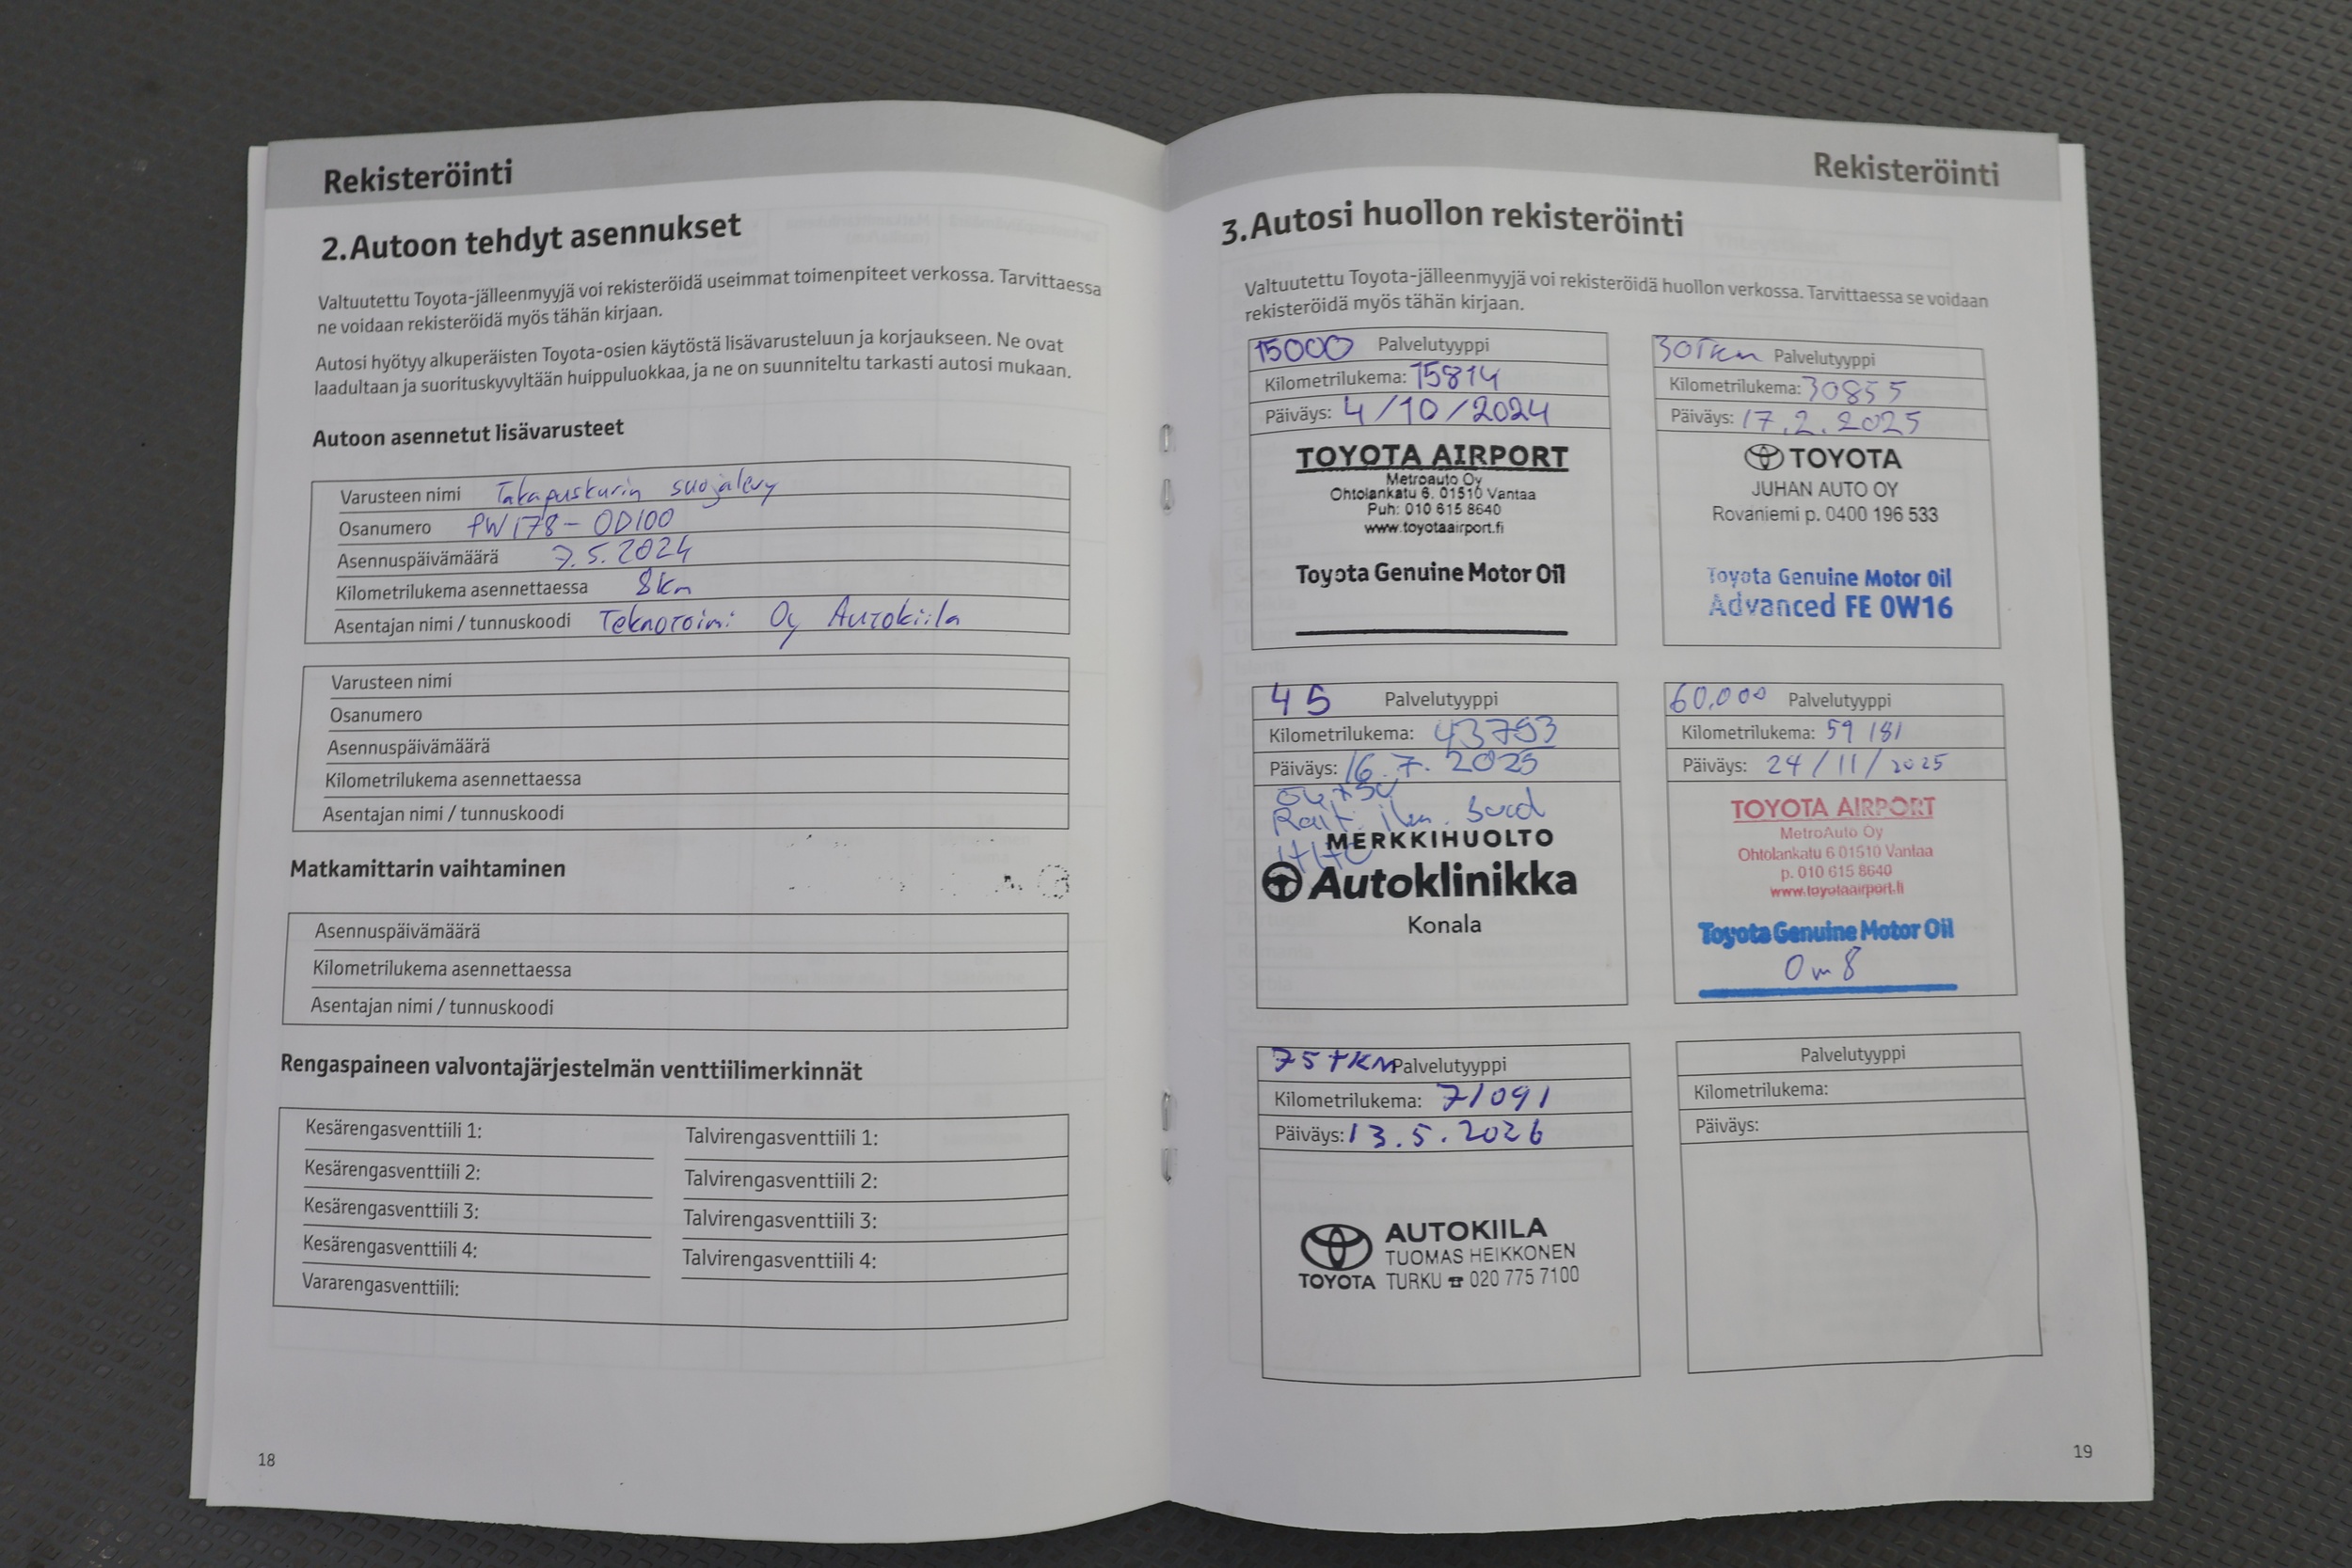 Rekisteröinti
2.Autoon tehdyt asennukset
Valtuutettu Toyota-jälleenmyyjä voi rekisteröidä useimmat toimenpiteet verkossa. Tarvittaessa
ne voidaan rekisteröidä myös tähän kirjaan.
Autosi hyötyy alkuperäisten Toyota-osien käytöstä lisävarusteluun ja korjaukseen. Ne ovat
laadultaan ja suorituskyvyltään huippuluokkaa, ja ne on suunniteltu tarkasti autosi mukaan.
Autoon asennetut lisävarusteet
Varusteen nimi Takapuskurin suojalevy
Osanumero PW178-0D100
Asennuspäivämäärä 7.5.2024
Kilometrilukema asennettaessa 8km
Asentajan nimi / tunnuskoodi Teknotoimi Oy Autokiila
Varusteen nimi
Osanumero
Asennuspäivämäärä
Kilometrilukema asennettaessa
Asentajan nimi / tunnuskoodi
Matkamittarin vaihtaminen
Asennuspäivämäärä
Kilometrilukema asennettaessa
Asentajan nimi / tunnuskoodi
Rengaspaineen valvontajärjestelmän venttiilimerkinnät
Kesärengasventtiili 1:
Kesärengasventtiili 2:
Kesärengasventtiili 3:
Kesärengasventtiili 4:
Vararengasventtiili:
Talvirengasventtiili 1:
Talvirengasventtiili 2:
Talvirengasventtiili 3:
Talvirengasventtiili 4:
18
Rekisteröinti
3.Autosi huollon rekisteröinti
Valtuutettu Toyota-jälleenmyyjä voi rekisteröidä huollon verkossa. Tarvittaessa se voidaan
rekisteröidä myös tähän kirjaan.
15000 Palvelutyyppi
Kilometrilukema: 15814
Päiväys: 4/10/2024
TOYOTA AIRPORT
Metroauto Oy
Ohtolankatu 6. 01510 Vantaa
Puh: 010 615 8640
www.toyotaairport.fi
Toyota Genuine Motor Oil
30Tkm Palvelutyyppi
Kilometrilukema: 30855
Päiväys: 17.2.2025
TOYOTA
JUHAN AUTO OY
Rovaniemi p. 0400 196 533
Toyota Genuine Motor Oil
Advanced FE 0W16
45 Palvelutyyppi
Kilometrilukema: 43793
Päiväys: 16.7.2025
Rait. ilm. Suod
MERKKIHUOLTO
Autoklinikka
Konala
60.000 Palvelutyyppi
Kilometrilukema: 59181
Päiväys: 24/11/2025
TOYOTA AIRPORT
MetroAuto Oy
Ohtolankatu 6 01510 Vantaa
p. 010 615 8640
www.toyotaairport.fi
Toyota Genuine Motor Oil
0w8
75TKM Palvelutyyppi
Kilometrilukema: 71091
Päiväys: 13.5.2026
AUTOKIILA
TUOMAS HEIKKONEN
TOYOTA TURKU ☎ 020 775 7100
Palvelutyyppi
Kilometrilukema:
Päiväys:
19